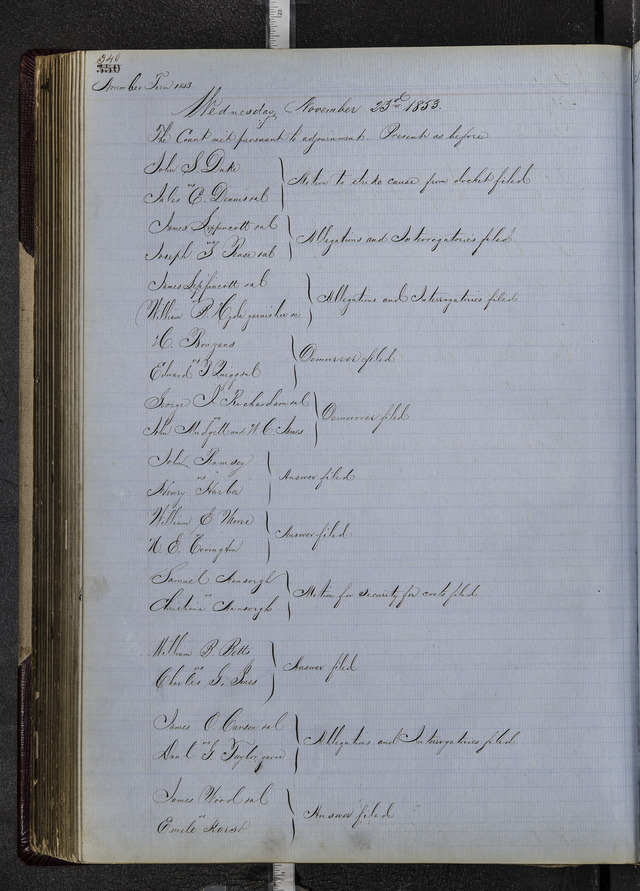 340
350
November Term 1853.
Wednesday November 23rd 1853.
The Court met pursuant to adjournment. Present as before
John S Duke
vs
Jules E. Dennis et al
Motion to strike cause from docket filed
James Lippincott et al
vs
Joseph et al
Allegations and Interrogatories filed
James Lippincott et al
vs
William P. Hyde garnishee &c
Allegations and Interrogatories filed
H.
vs
Edward et al
Demurrer filed
George Richardson et al
vs
John and W. C. James
Demurrer filed
John Ramsey
vs
Henry Harber
Answer filed
William E Morse
vs
H. E. Covington
Answer filed
Samuel Ansorgh
vs
Christina Ansorgh
Motion for security for costs filed
William P. Betts
vs
Charles
Answer filed
James O. Carson et al
vs
Danl G. Taylor
Allegations and Interrogatories filed
James Wood et al
vs
Emile Karst
Answer filed